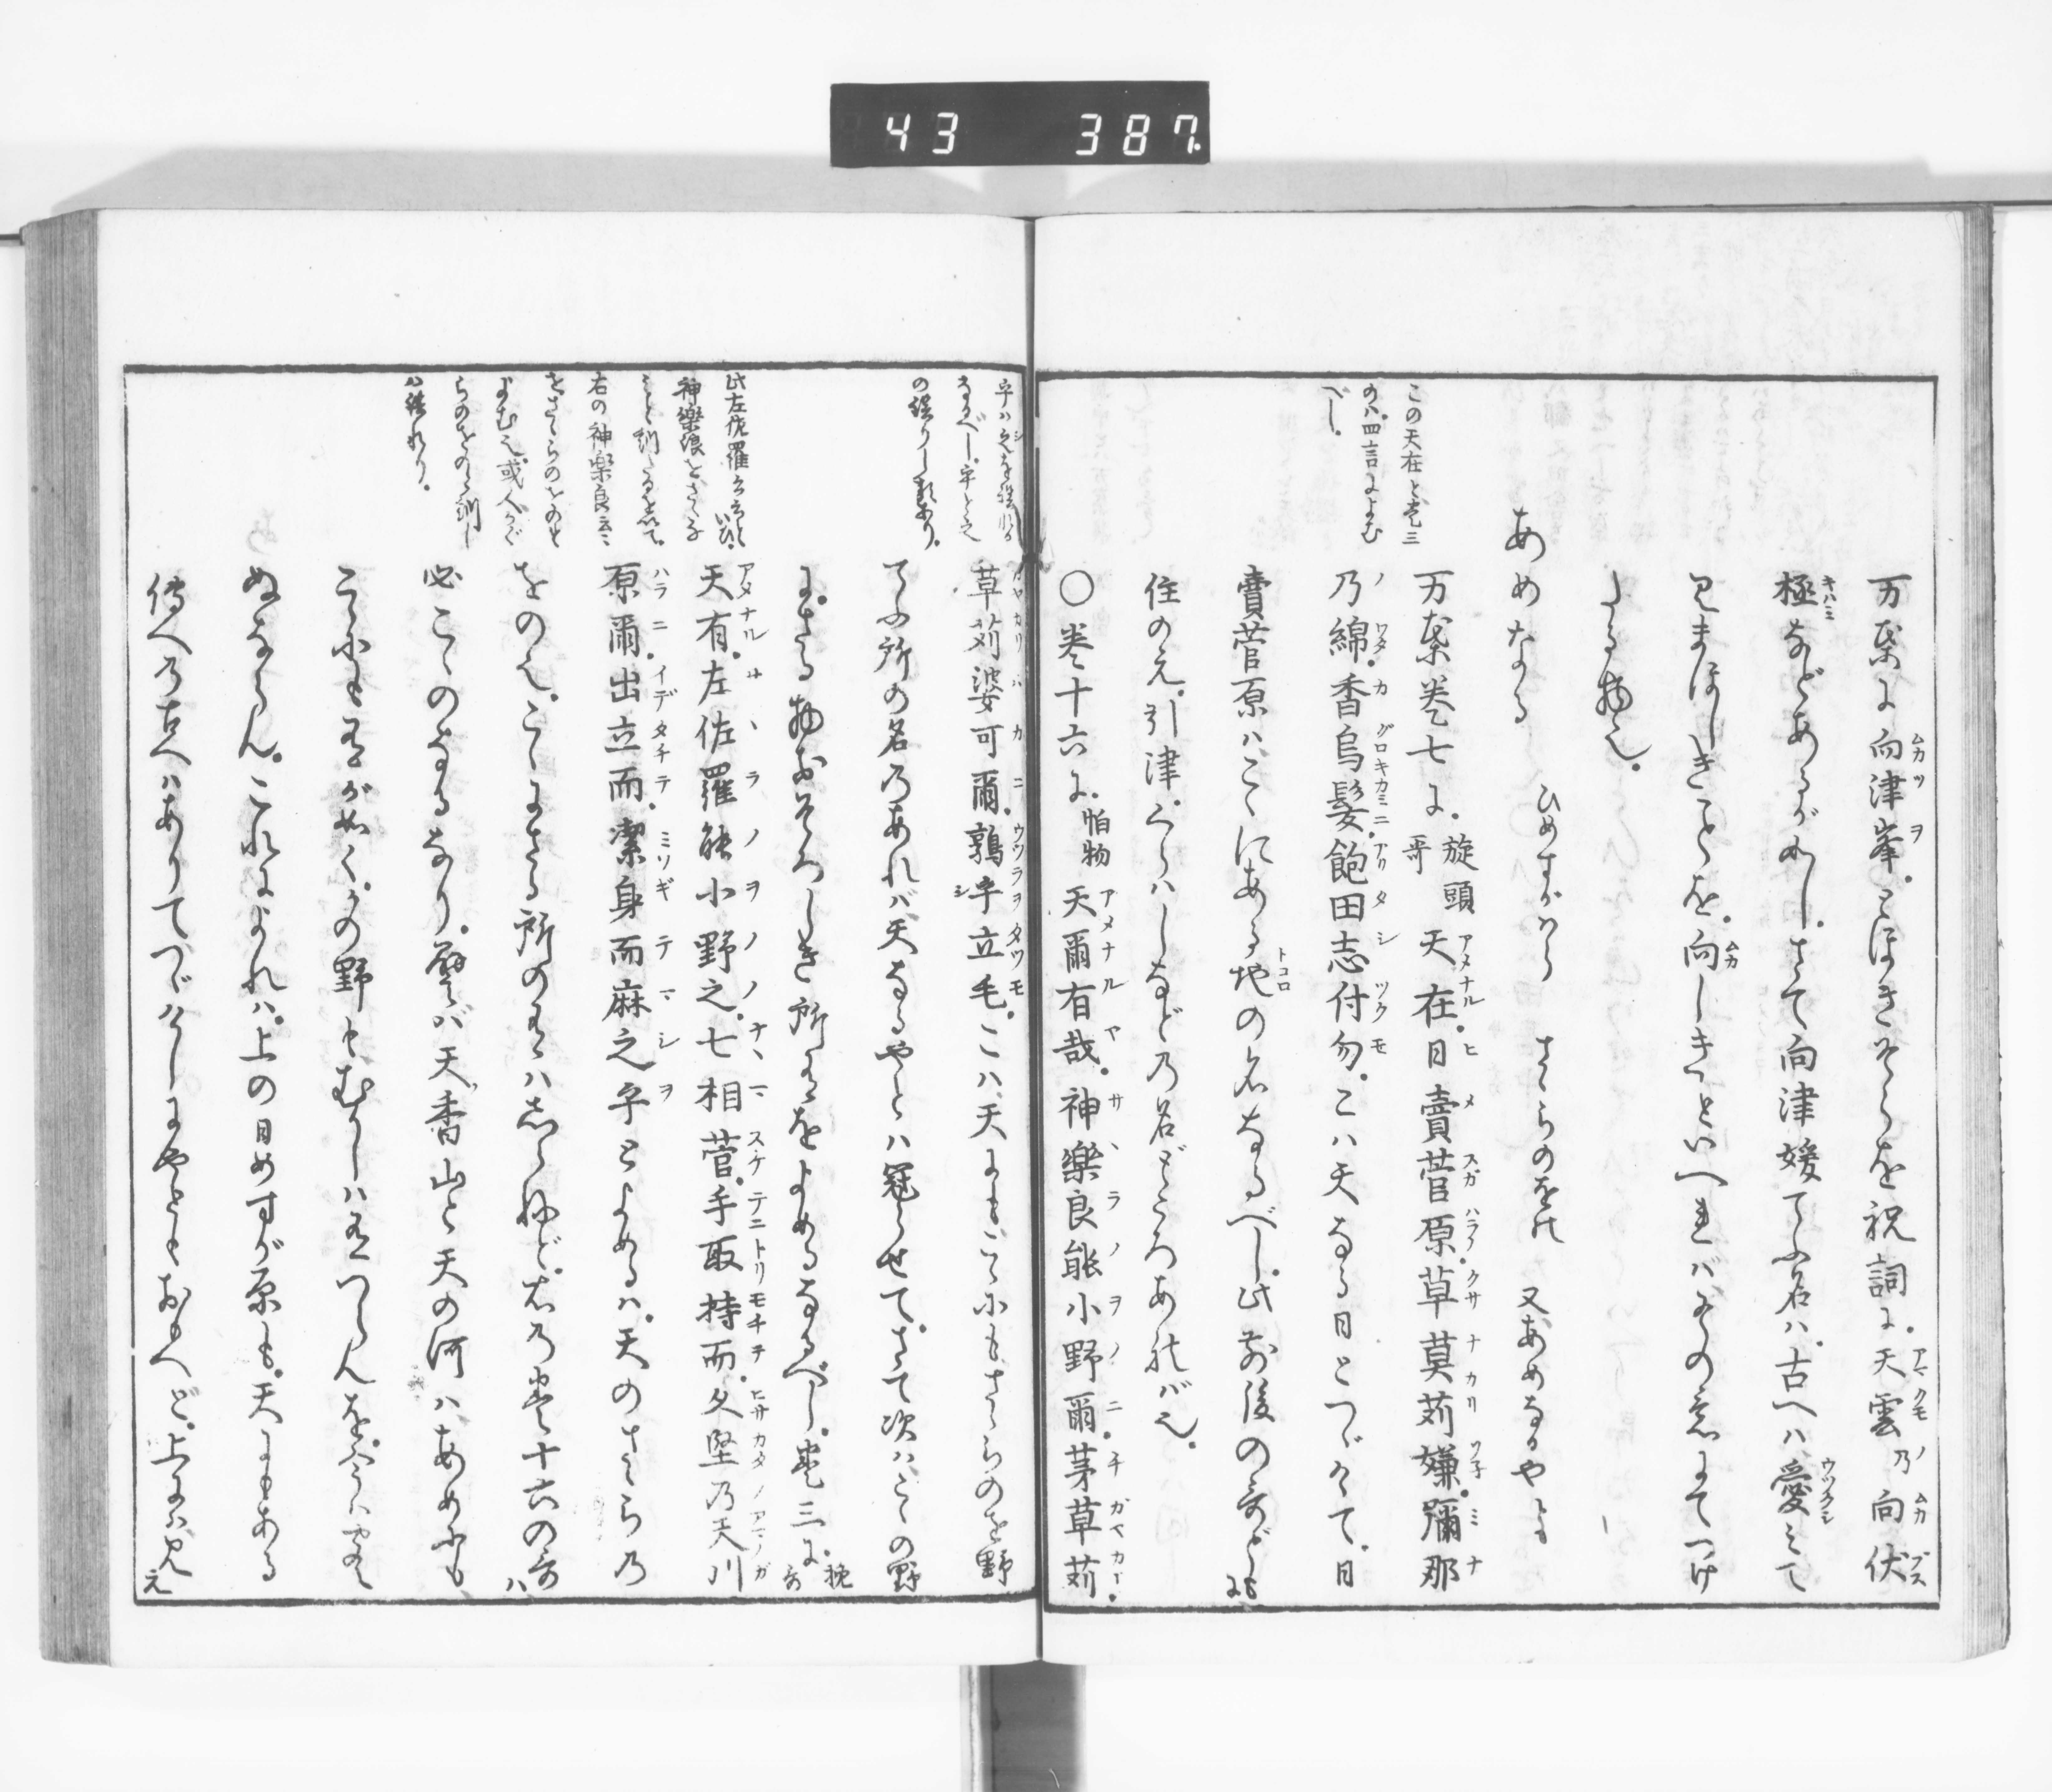 43 387
万葉に向津峯。とほきそらを祝詞に。天雲乃向伏
極などあるが如し。さて向津媛てふ名は。古へは愛みて
見まほしきことを。向しきといへれバその意にてつけ
たる物也。
あめなる ひめすがはら さゝらのをの 又あめなるやとも
この天在と巻三
のハ四言によむ
べし。
万葉巻七に。旋頭哥 天在。日賣菅原。草莫苅嫌。彌那
乃綿。香烏髪。飽田志付勿。こハ天なる日とつゞけて。日
賣菅原ハこゝにある地の名なるべし。此前後の哥どもに
住のえ。引津。くらはしなどの名どころあれバ也。
〇巻十六に。怕物 天爾有哉。神樂良能小野爾。茅草苅。
草苅婆可爾。鶉乎立毛。こハ天にもこゝにもさゝらのを野
てふ所の名のあれバ天なるやとハ冠らせて。さて次はこゝの野
にさる物おそろしき所有をよめるなるべし。巻三に。挽哥
天有。左佐羅能小野之。七相菅。手取持而。久堅乃天川
原爾。出立而。潔身而麻之乎とよめるハ。天のさゝら乃
をの也。こゝにさる所の有ハしらねど。右乃巻十六の哥ハ
必こゝのなるなり。譬バ天香山と天の河ハあめにも
こゝにも有が如く。かの野もむかしハ有つらんを。今ハ
ぬならん。これによれハ。上の日めすが原も。天にもある
傳への古へハありてつゞけしにやともおもへど。上にハ見え
字ハ之を誤れる
なるべし。字と之
の誤りし類あり。
此左佐羅
神樂浪をさゝなみ
と訓るを以て。
右の神楽良云云
をさゝらのをのと
よむ也。或人かぐ
らのをのと訓し
ハ誤れり。